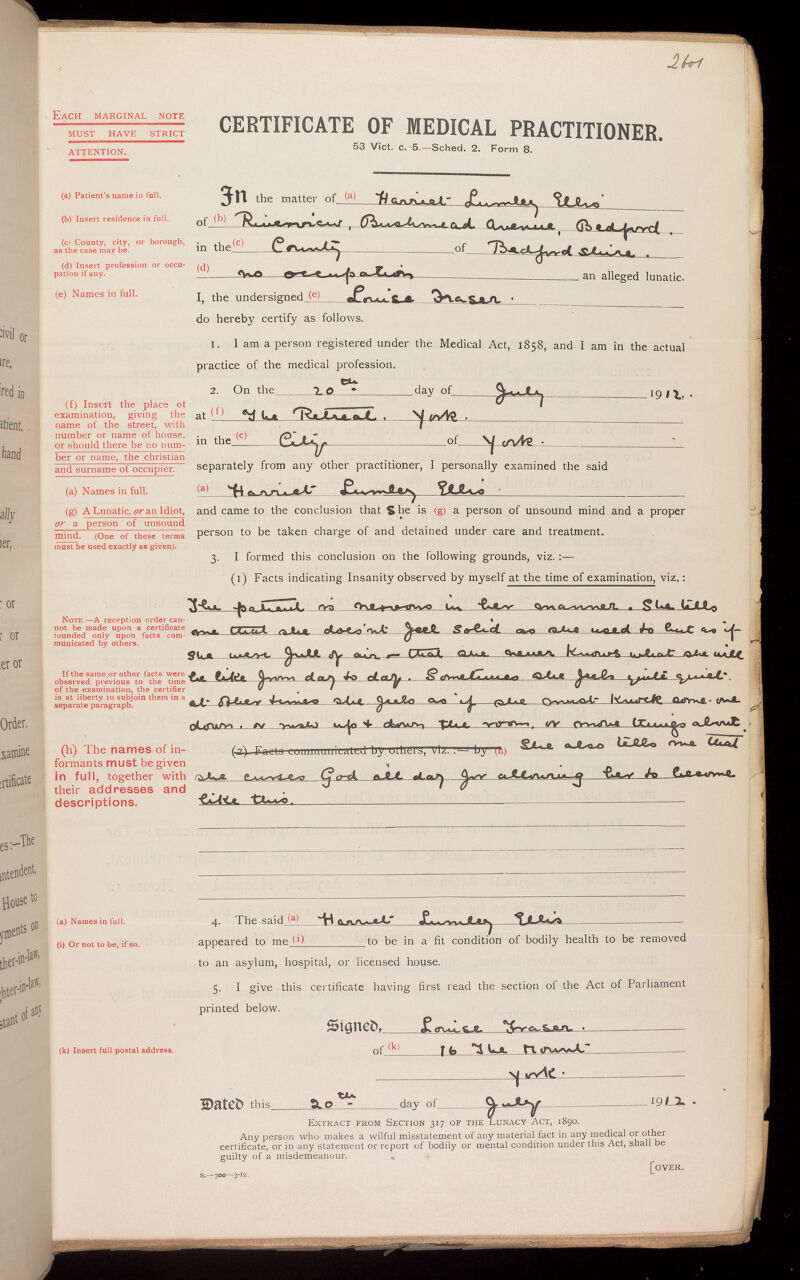 2601
EACH MARGINAL NOTE
MUST HAVE STRICT
ATTENTION.
CERTIFICATE OF MEDICAL PRACTITIONER.
53 Vict. c. 5.—Sched. 2. Form 8.
(a) Patient's name in full.
In the matter of (a) Harriet Lumley Ellis
(b) Insert residence in full.
of (b) Riverview, Bushmead Avenue, Bedford.
(c) County, city, or borough,
as the case may be.
in the (c) County of Bedfordshire.
(d) Insert profession or occu-
pation if any.
(d) no occupation an alleged lunatic.
(e) Names in full.
I, the undersigned (e) Louise Fraser.
do hereby certify as follows.
1. I am a person registered under the Medical Act, 1858, and I am in the actual
practice of the medical profession.
2. On the 20th day of July 1912.
(f) Insert the place of
examination, giving the
name of the street, with
number or name of house,
or should there be no num-
ber or name, the christian
and surname of occupier.
at (f) The Retreat. York.
in the (c) City of York.
separately from any other practitioner, I personally examined the said
(a) Names in full.
(a) Harriet Lumley Ellis
(g) A Lunatic, or an Idiot,
or a person of unsound
mind. (One of these terms
must be used exactly as given).
and came to the conclusion that She is (g) a person of unsound mind and a proper
person to be taken charge of and detained under care and treatment.
3. I formed this conclusion on the following grounds, viz.:—
(1) Facts indicating Insanity observed by myself at the time of examination, viz.:
NOTE.—A reception order can-
not be made upon a certificate
founded only upon facts com-
municated by others.
If the same or other facts were
observed previous to the time
of the examination, the certifier
is at liberty to subjoin them in a
separate paragraph.
The patient is nervous in her manner. She tells
me that she does'nt feel solid as she used to but as if
she were full of air – that she never knows what she will
be like from day to day. Sometimes she feels quite quiet.
at other times she feels as if she must knock some-one
down, or rush up & down the room, or move things about.
(h) The names of in-
formants must be given
in full, together with
their addresses and
descriptions.
(2) Facts communicated by others, viz.:— by (h) She also tells me that
she curses God all day for allowing her to become
like this.
(a) Names in full.
4. The said (a) Harriet Lumley Ellis
(i) Or not to be, if so.
appeared to me (i) to be in a fit condition of bodily health to be removed
to an asylum, hospital, or licensed house.
5. I give this certificate having first read the section of the Act of Parliament
printed below.
Signed, Louise Fraser.
(k) Insert full postal address.
of (k) 16 The Mount
York.
Dated this 20th day of July 1912.
EXTRACT FROM SECTION 317 OF THE LUNACY ACT, 1890.
Any person who makes a wilful misstatement of any material fact in any medical or other
certificate, or in any statement or report of bodily or mental condition under this Act, shall be
guilty of a misdemeanour.
[OVER.
S.—500—3-12.